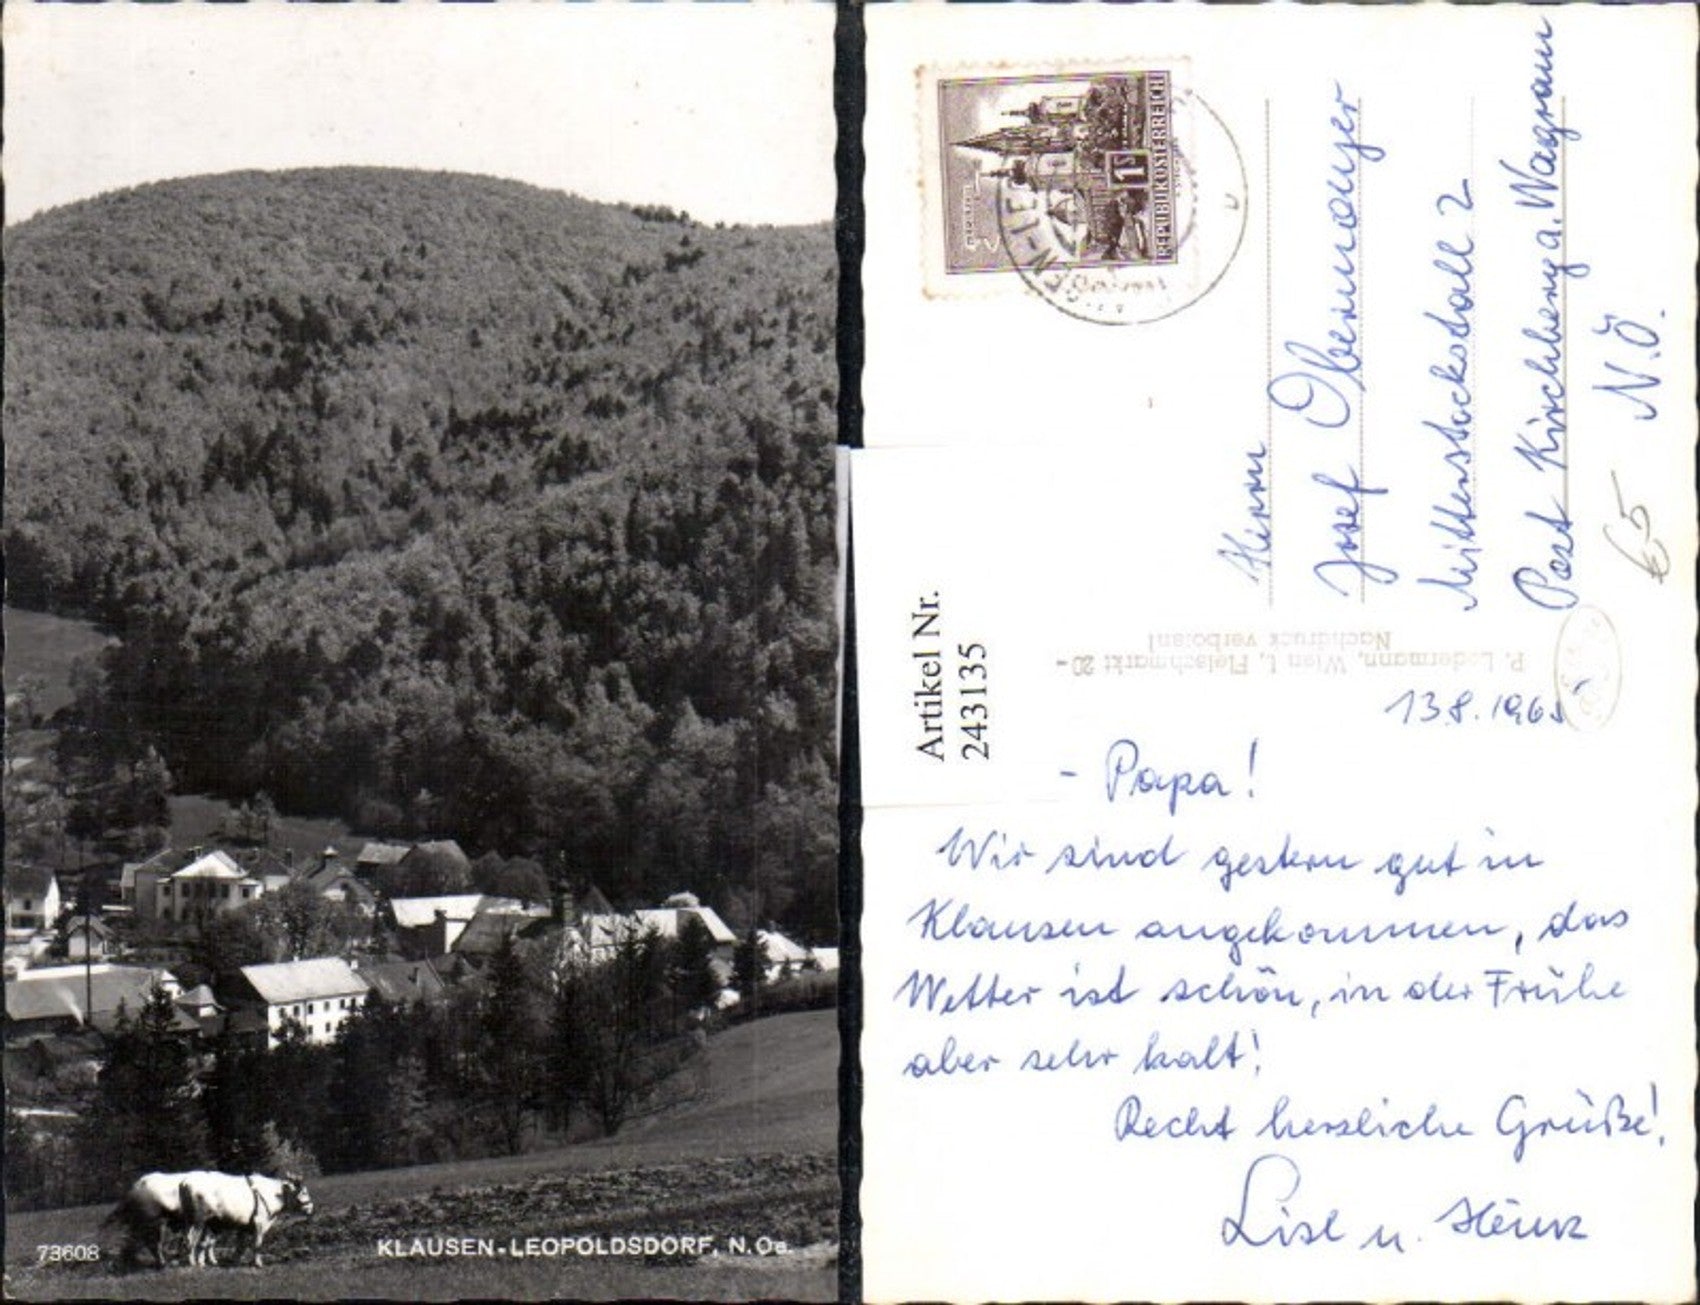 73608
KLAUSEN-LEOPOLDSDORF, N.Oe.
1S
REPUBLIK ÖSTERREICH
Herrn
Josef Obermayer
Mitterstockstall 2
Post Kirchberg a. Wagram
N.Ö.
€5
Artikel Nr.
243135
P. Ledermann, Wien I, Fleischmarkt 20-
Nachdruck verboten!
13.8.196
- Papa!
Wir sind gestern gut in
Klausen angekommen, das
Wetter ist schön, in der Frühe
aber sehr kalt!
Recht herzliche Grüße!
Lisl u. Heinz